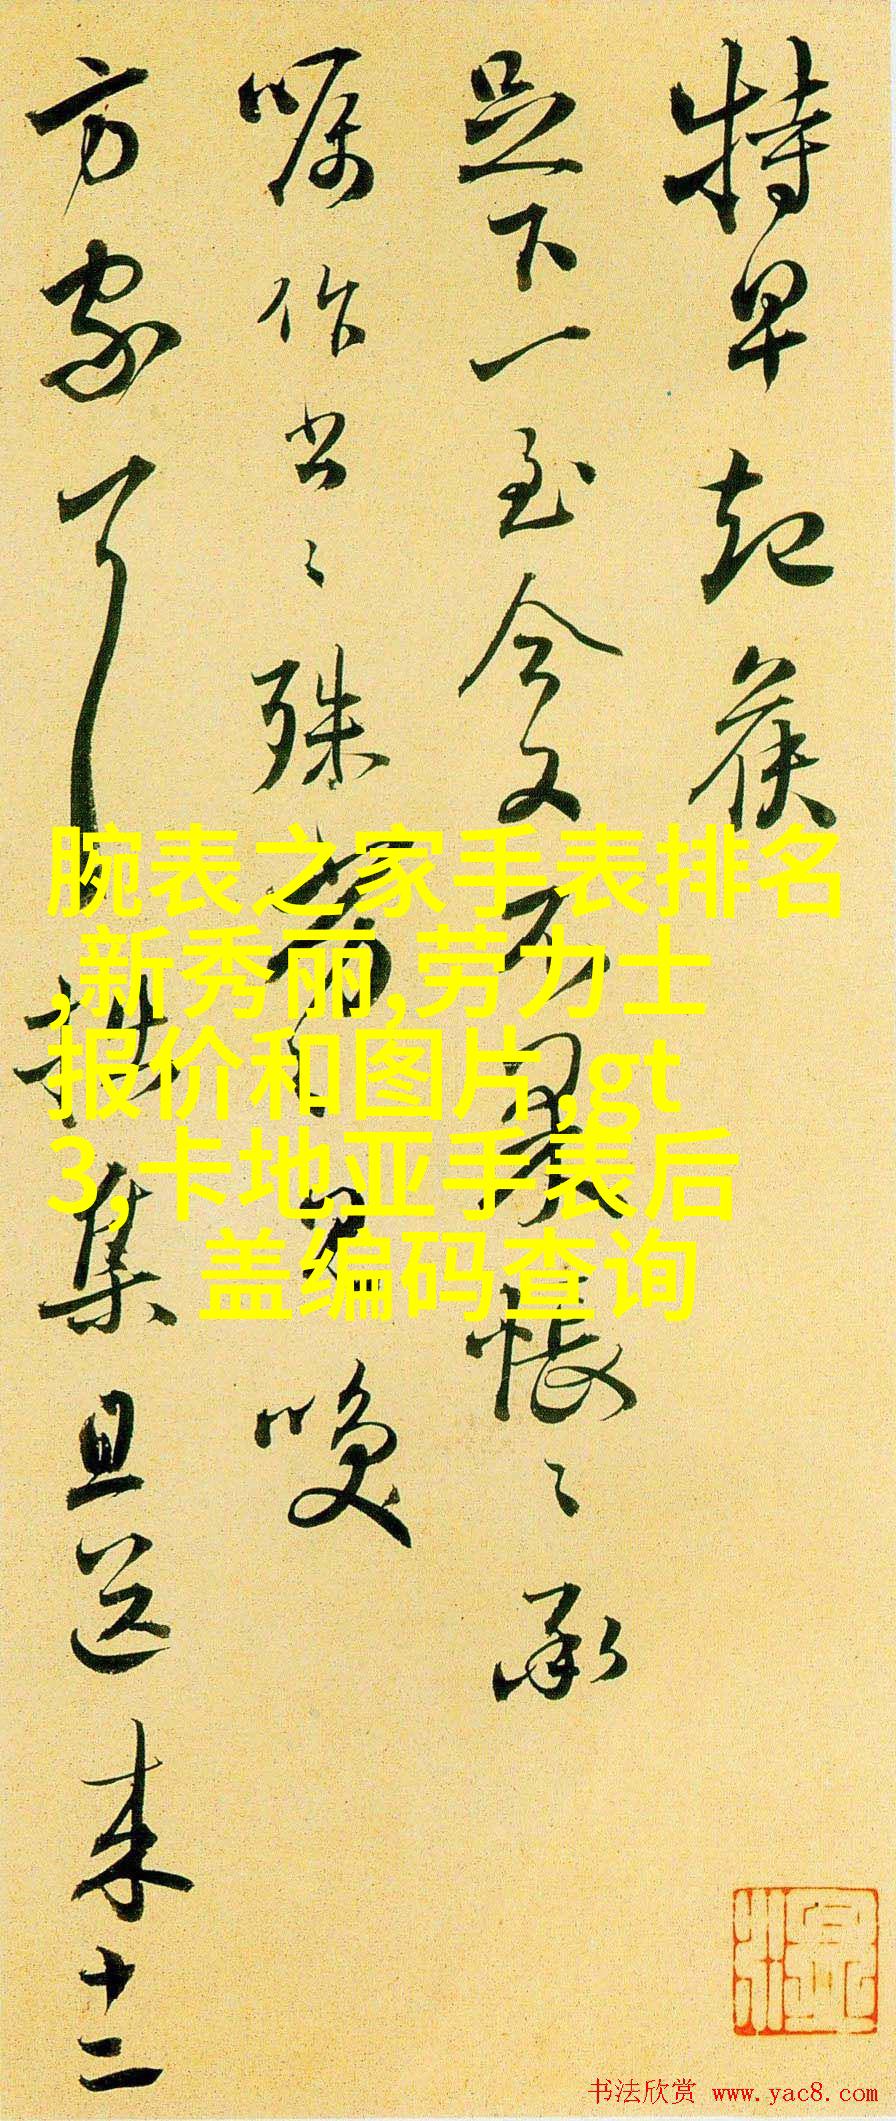 特早起矦
足下一至今又不果悵〻承
嘱作书〻殊
方家耳 集且送来十二
腕表之家手表排名
,新秀丽,劳力士
报价和图片,gt
3,卡地亚手表后
盖编码查询
书法欣赏 www.yac8.com